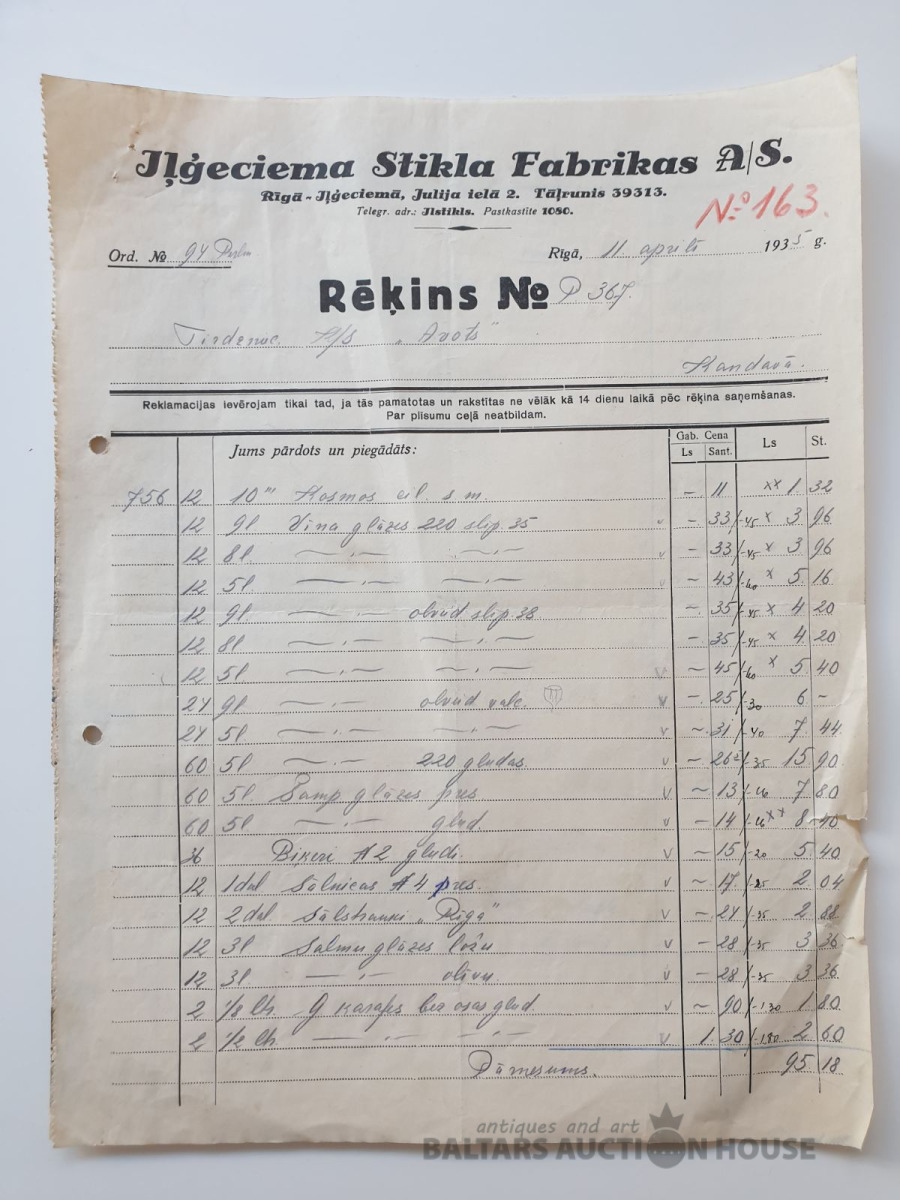 Iļģeciema Stikla Fabrikas A/S.
Rīgā - Iļģeciemā, Julija ielā 2. Tāļrunis 39313.
Telegr. adr.: Ilstikls. Pastkastīte 1080.
No 163.
Ord. No 94
Rīgā, 11 aprilī 1935 g.
Rēķins No P 367.
A/S „Avots"
Kandavā.
Reklamacijas ievērojam tikai tad, ja tās pamatotas un rakstītas ne vēlāk kā 14 dienu laikā pēc rēķina saņemšanas.
Par plīsumu ceļā neatbildam.
Jums pārdots un piegādāts: Gab. Cena Ls St.
Ls Sant.
756 12 10''' Kosmos cil. s m. – 11 xx 1 32
12 9l Vīna glāzes 220 slip 35 v – 33 /-45 x 3 96
12 8l —〃— —〃— v – 33 /-45 x 3 96
12 5l —〃— —〃— v – 43 /-60 x 5 16
12 9l —〃— olveid slip 38 – 35 /-45 x 4 20
12 8l —〃— —〃— – 35 /-45 x 4 20
12 5l —〃— —〃— v – 45 /-60 x 5 40
24 9l —〃— olveid v – 25 /-30 6 –
24 5l —〃— —〃— v – 31 /-40 7 44
60 5l —〃— 220 gludas v – 26½ /-35 15 90
60 5l Šamp glāzes pres v – 13 /-16 7 80
60 5l —〃— glud. v – 14 /-16 xx 8 40
36 Biķeri A 2 gludi v – 15 /-20 5 40
12 1dal Sālnicas A 4 pres. v – 17 /-25 2 04
12 2dal Sālstrauki „Rīga" v – 24 /-35 2 88
12 3l glāzes v – 28 /-35 3 36
12 3l —〃— olīvu v – 28 /-35 3 36
2 karafes bez osas glud. v – 90 /-1.30 1 80
2 1/2 ltr. —〃— —〃— v 1 30 /-1.80 2 60
Pārnesums. 95 18
antiques and art
BALTARS AUCTION HOUSE